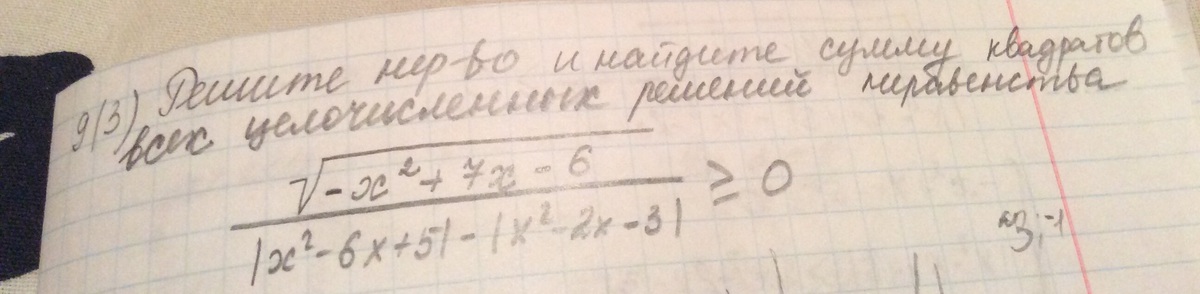 9(3) Решите нер-во и найдите сумму квадратов
всех целочисленных решений неравенства
√-x²+7x-6
/|x²-6x+5|-|x²-2x-3| ≥ 0
3;-1